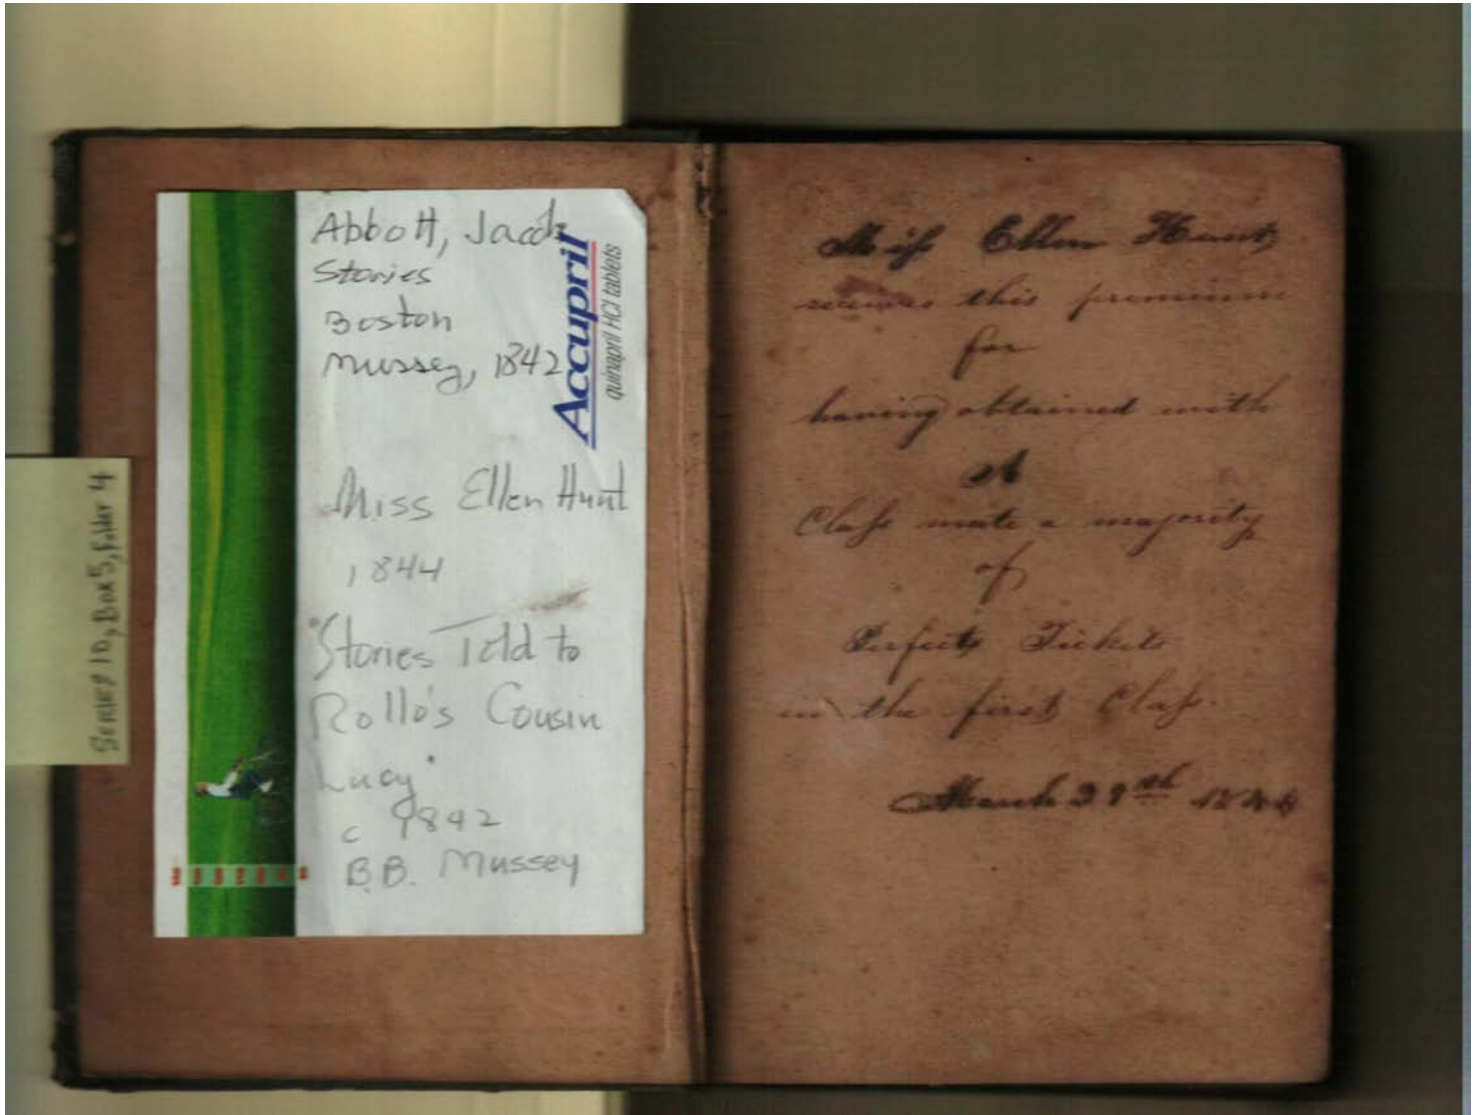 Series 10, Box 5, Folder 4
Abbott, Jacob
Stories
Boston
Mussey, 1842
Accupril
quinapril HCl tablets
Miss Ellen Hunt
1844
"Stories Told to
Rollo's Cousin
Lucy"
c 1842
B.B. Mussey
Miss Ellen Hunt
receives this premium
for
having obtained with
A
Class mate a majority
of
Perfect Tickets
in the first Class.
March 29th 1844